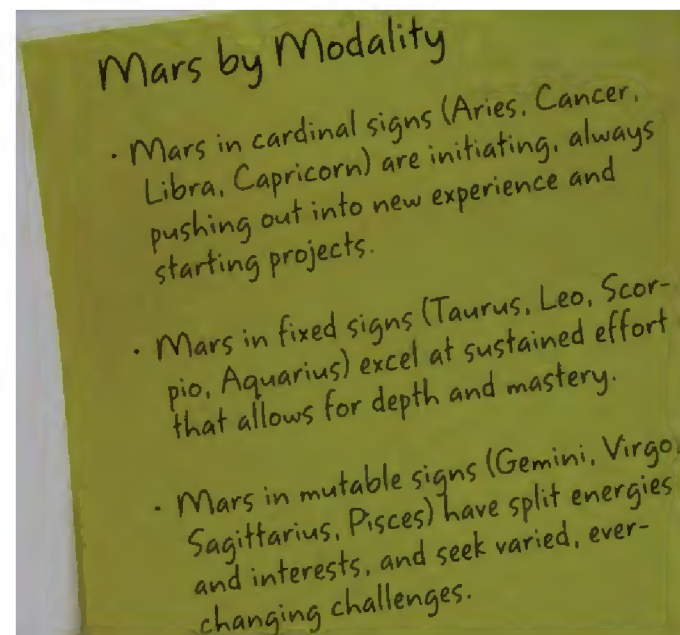 Mars by Modality
· Mars in cardinal signs (Aries, Cancer,
Libra, Capricorn) are initiating, always
pushing out into new experience and
starting projects.
· Mars in fixed signs (Taurus, Leo, Scor-
pio, Aquarius) excel at sustained effort
that allows for depth and mastery.
· Mars in mutable signs (Gemini, Virgo,
Sagittarius, Pisces) have split energies
and interests, and seek varied, ever-
changing challenges.